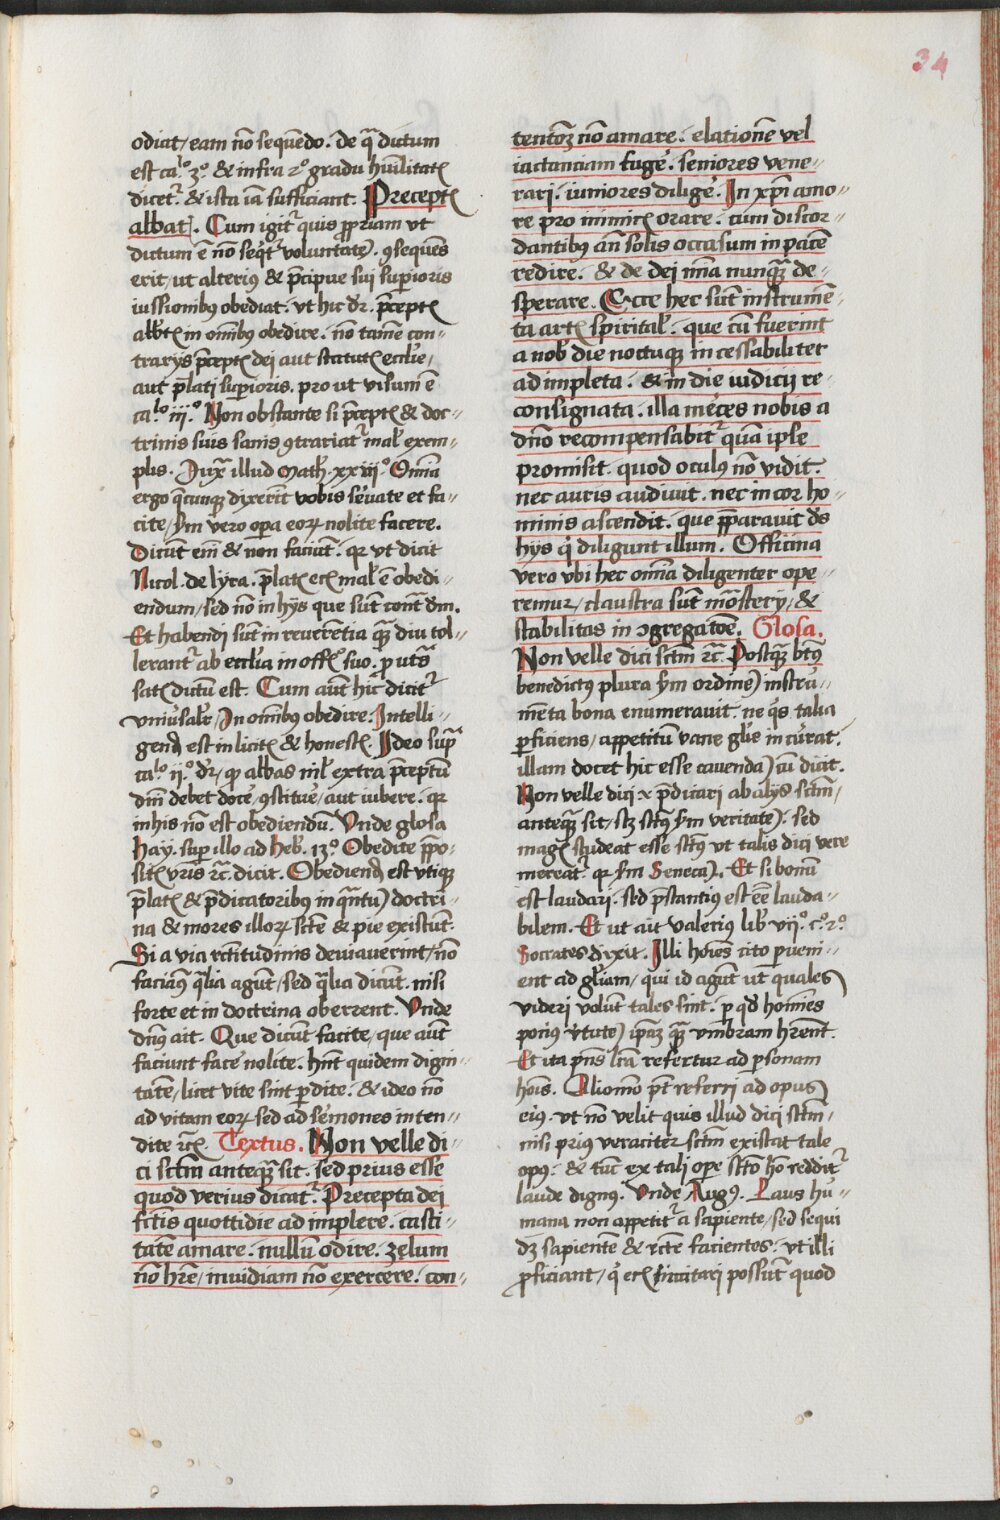 34
odiat / eam nõ sequẽdo . de q̃ dictum
est ca.lo 3.o & infra 2.o gradu hũilitatꝭ
dicet᷑ . & ista iã sufficiant . Preceptꝭ
abbatꝭ . Cum igit᷑ quis ꝓpriam vt
dictum ẽ nõ seqt᷑ voluntatẽ . ꝯsequẽs
erit / ut alteriꝰ & p̃cipue sui suꝑioris
iussionibꝰ obediat . vt hic dr̃ . p̃ceptꝭ
abbtꝭ in omĩbꝰ obedire . nõ tamẽ con=
trarys p̃ceptꝭ dei aut statutꝭ ecclie /
aut p̃lati suꝑioris . pro ut visum ẽ
ca.lo iii.o Non obstante si p̃ceptꝭ & doc=
trinis suis sanis ꝯtrariat᷑ mal᷑ exem=
plis . Iuxᷓ illud Math . xxiii.o Om̃ia
ergo q̃cunqꝫ dixerĩt vobis s̃uate et fa=
cite / ẜm vero opera eoꝝ nolite facere .
Dicũt em̃ & non faciũt . qr vt dicit
Nicol . de lyra . p̃latꝭ eciꝭ mal᷑ ẽ obedi=
endum / sed nõ in hijs que sũt contᷓ dm̃ .
Et habendi sũt in reuerẽtia qᷓꝫ diu tol=
lerant᷑ ab ecclia in offꝰ suo . ꝓ utᷓ
satꝭ dictũ est . Cum aũt hic dicit᷑
vniũsalr / In omĩbꝰ obedire . Intelli=
gendꝫ est in licitꝭ & honestꝭ . Ideo supᷓ
ca.lo ii.o dr̃ , ꝙ abbas nil᷑ extra p̃ceptũ
dm̃i debet docẽ / ꝯstituẽ / aut iubere . qr
in his nõ est obediendũ . Vnde glosa
hay . suꝑ illo ad heb᷑ . 13.o Obedite p̃po=
sitꝭ vr̃is ⁊c̃ . dicit . Obediendꝫ est vtiqꝫ
p̃latꝭ & p̃dicatoribꝰ in qᷓntũ doctri=
na & mores illoꝝ sctẽ & pie existũt .
Si a via rc̃titudinis deuiauerint / nõ
faciaꝰ q̃lia agũt / sed q̃lia dicũt . nisi
forte et in doctrina oberrent . Vnde
dñs ait . Que dicũt facite / que aũt
faciunt facẽ nolite . hñt quidem digni=
tatẽ / licet vite sint ꝑdite . & ideo nõ
ad vitam eoꝝ sed ad s̃mones inten=
dite ⁊cꝭ . Textus . Non velle di=
ci sctm̃ anteqᷓꝫ sit . sed prius esse
quod verius dicat᷑ . Precepta dei
fctĩs quottidie ad implere . casti=
tatẽ amare . nullũ odire . zelum
nõ hr̃e / inuidiam nõ exercere . con=
tentõꝫ nõ amare . elationẽ vel
iactanciam fugẽ . seniores vene=
rari . iuniores diligẽ . In xp̃i amo=
re pro inimicꝭ orare . cum discor=
dantibꝰ añ solis occasum in pacẽ
redire . & de dei mĩa nunqᷓꝫ de=
sperare . Ecce hec sũt instrumẽ=
ta artꝭ spirital᷑ . que cũ fuerint
a nob᷑ die noctuqꝫ incessabiliter
adimpleta . & in die iudicij re=
consignata . illa m̃ces nobis a
dño recompensabit᷑ quã ipse
promisit . quod oculꝰ nõ vidit .
nec auris audiuit . nec in cor ho=
minis ascendit . que p̃parauit d̃s
hijs q̃ diligunt illum . Officina
vero vbi hec om̃ia diligenter ope=
remur / claustra sũt mõastery / &
stabilitas in ꝯgregatõe . Glosa .
Non velle dici sctm̃ ⁊c̃ . Postqᷓꝫ btꝰ
benedictus plura ẜm ordinẽ instru=
mẽta bona enumerauit . ne q̃s talia
ꝑficiens / appetitũ vane gl̃ie incurat .
illam docet hic esse cauendã cũ dicit .
Non velle dici ⁊ p̃dicari ab alijs sctm̃ /
anteqᷓꝫ sit / scꝫ sctꝰ ẜm veritatẽ . sed
magꝭ studeat esse sctꝰ vt talis dici vere
mereat᷑ . qr ẜm Senecã . Et si bonũ
est laudari . sed p̃stantiꝰ est eẽ lauda=
bilem . Et ut ait valerius lib᷑ . vii.o c.o 2.o
Socrates dixit . Illi hoĩes cito ꝑueni=
ent ad gl̃iam / qui id agũt ut quales
videri volũt tales sint . ꝑ qd̃ homĩes
pociꝰ v̾tutẽ ip̃aꝫ qᷓꝫ vmbram hr̃ent .
Et ita pñs lr̃a refertur ad ꝑsonam
hoĩs . Aliomõ pt̃ referri ad opus
eiꝰ . vt nõ velit quis illud dici sctm̃ /
nisi priꝰ veraciter sctm̃ existat tale
opꝰ . & tũc ex tali ope sctõ hõ reddit᷑
laude dignꝰ . Vnde Augꝰ . Laus hu=
mana non appetit᷑ a sapiente / sed sequi
dꝫ sapientẽ & rc̃te facientes . vt illi
ꝓficiant / q̃ eciꝭ imitari possũt quod